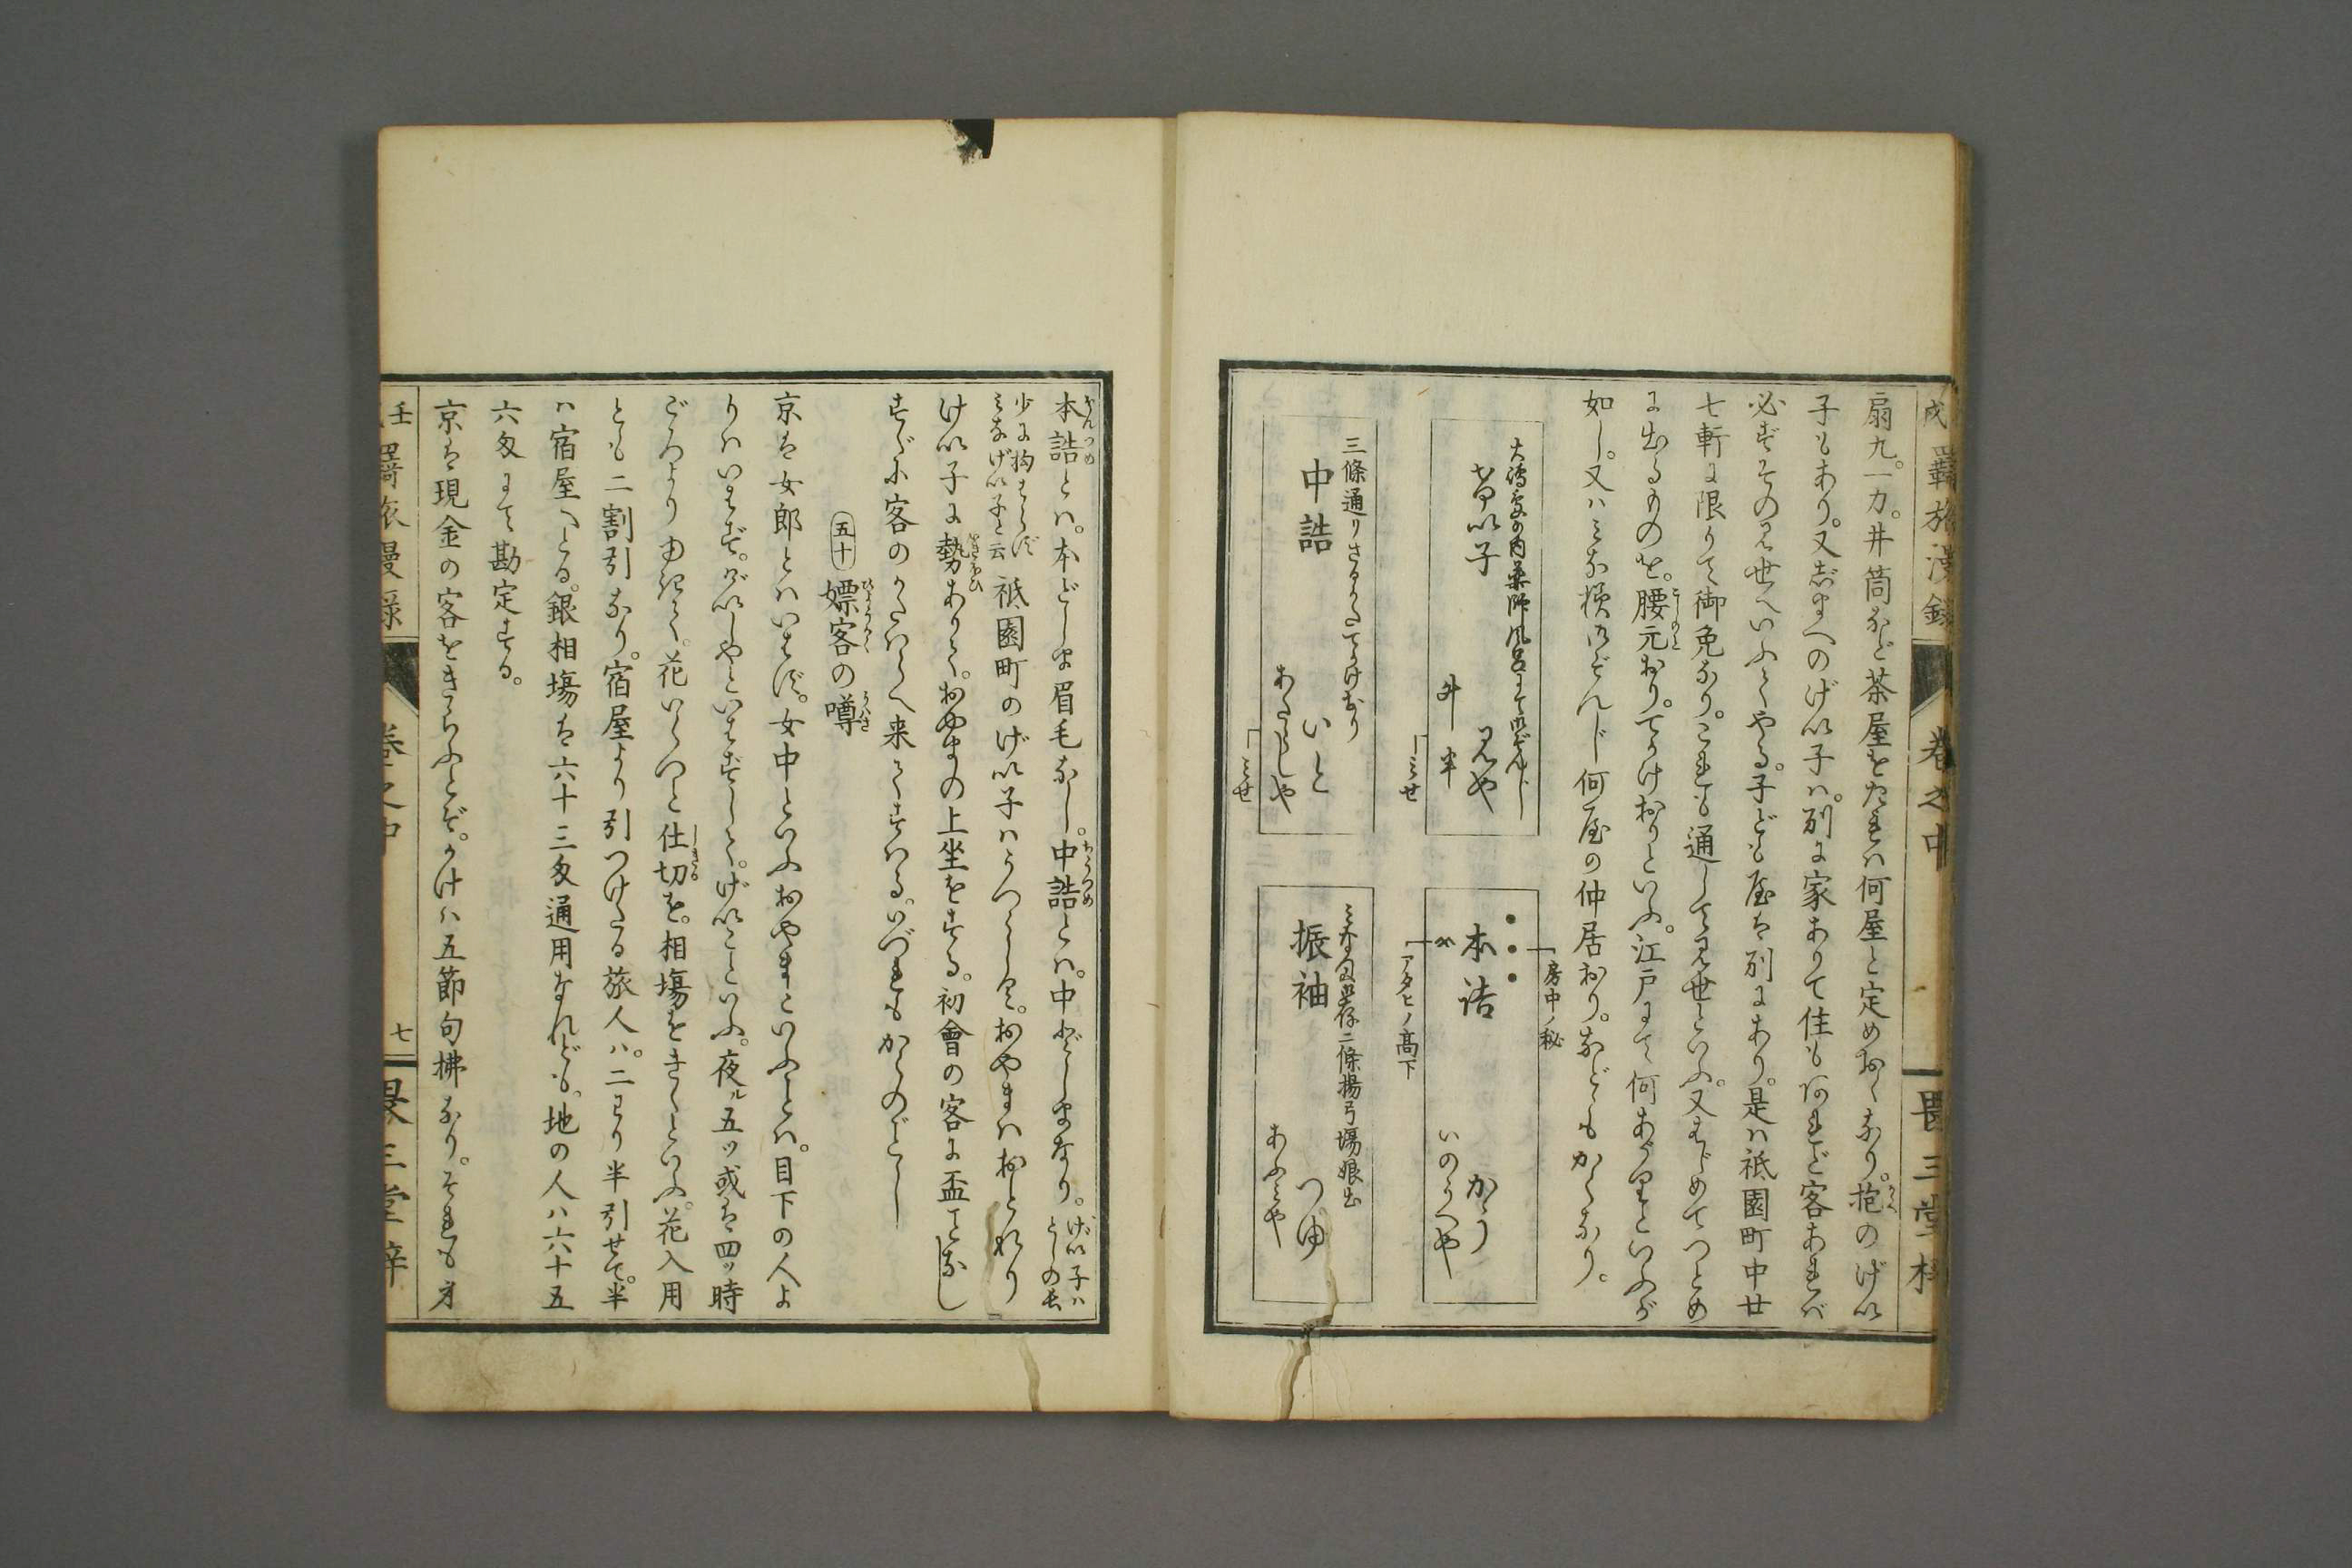 戌羇旅漫録
卷之中
畏三堂梓
扇九。一力。井筒など茶屋をたれハ何屋と定めおくなり。抱のげい
子もあり。又じまへのげい子ハ。別に家ありて住もあれど客あれバ
必ずそのみ世へいふてやる。子ども屋は別にあり。是ハ祇園町中廿
七軒に限りて御免なり。これも通してみ世といふ。又はじめてつとめ
に出るものを。腰元おり。てかけおりといふ。江戸にて何あがりといふが
如し。又ハミな様御ぞんじ何屋の仲居おり。などもかくなり。
風呂にて御ぞんじ
いと
三條通りさるかたてかけおり
中詰
いと
ミせ
ミせ
房中ノ秘
本詰
いのうへや
アタヒノ高下
二條揚弓場娘出
振袖
つゆ
あふミや
本詰とハ。本どしま眉毛なし。中詰とハ。中どしまなり。げい子ハとしの長
少に拘らずミなげい子と云祇園町のげい子ハうつくし。おやまハおとれり
けい子に勢ありて。おやまの上坐をする。初會の客に盃をなし
すぐに客のかたハらへ来てすハる。いづれもかくのごとし
五十 嫖客の噂
京は女郎とハいはず。女中といふおやまといふとハ。目下の人よ
りハいはず。げいしやといはずして。げいこといふ。夜ル五ツ或は四ツ時
ごろよりゆけば。花いくつと仕切を。相塲をきくといふ。花入用
とも二割引なり。宿屋より引つけたる旅人ハ。二わり半引せて。半
ハ宿屋へとる。銀相塲は六十三匁通用なれども。地の人ハ六十五
六匁にて勘定する。
京は現金の客をきらふとぞ。かけハ五節句拂なり。それもオ
壬羇旅漫録
卷之中
七
畏三堂梓